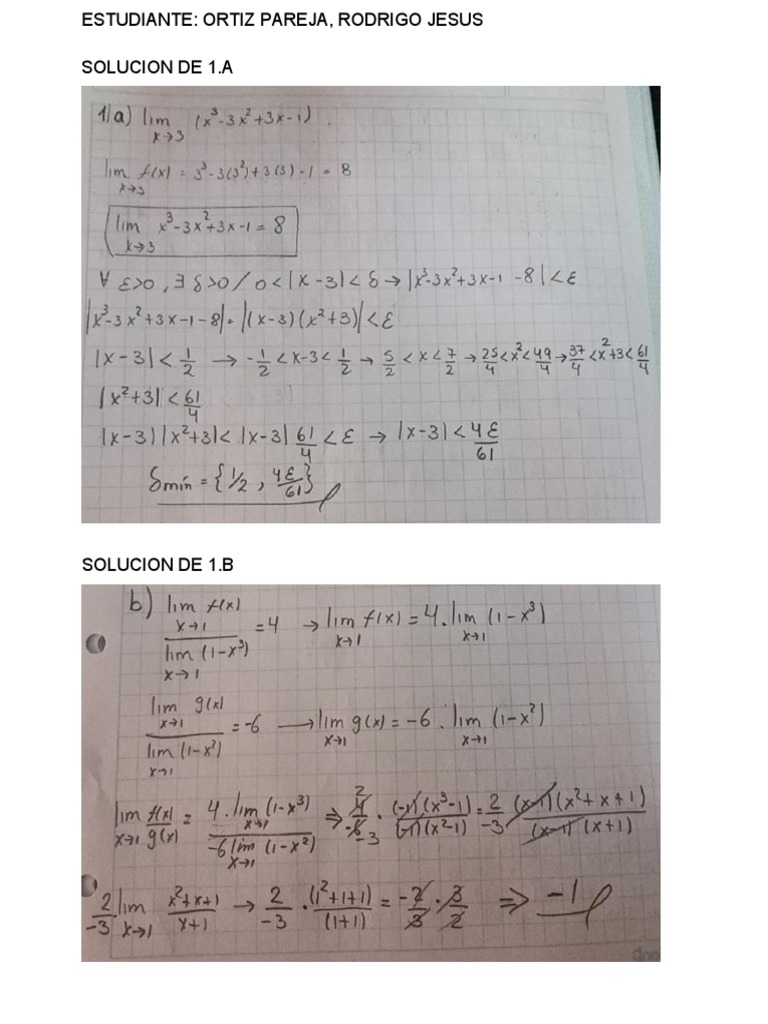 ESTUDIANTE: ORTIZ PAREJA, RODRIGO JESUS
SOLUCION DE 1.A
1/a) lim x→3 (x³-3x²+3x-1).
lim x→3 f(x) = 3³-3(3²)+3(3)-1 = 8
lim x→3 x³-3x²+3x-1 = 8
∀ ε>0, ∃ δ>0 / 0<|x-3|<δ → |x³-3x²+3x-1-8|<ε
|x³-3x²+3x-1-8| = |(x-3)(x²+3)|<ε
|x-3|<1/2 → -1/2<x-3<1/2 → 5/2<x<7/2 → 25/4<x²<49/4 → 37/4<x²+3<61/4
|x²+3|<61/4
|x-3||x²+3|<|x-3|61/4<ε → |x-3|<4ε/61
δmín = {1/2, 4ε/61}
SOLUCION DE 1.B
b) lim x→1 f(x) / lim x→1 (1-x³) = 4 → lim x→1 f(x) = 4. lim x→1 (1-x³)
lim x→1 g(x) / lim x→1 (1-x²) = -6 → lim x→1 g(x) = -6. lim x→1 (1-x²)
lim x→1 f(x)/g(x) = 4.lim x→1 (1-x³) / -6 lim x→1 (1-x²) ⇒ 2 4/-6 -3 . (-1)(x³-1)/(-1)(x²-1) = 2/-3 (x-1)(x²+x+1)/(x-1)(x+1)
2/-3 . lim x→1 x²+x+1/x+1 → 2/-3 . (1²+1+1)/(1+1) = -2/3 . 3/2 ⇒ -1